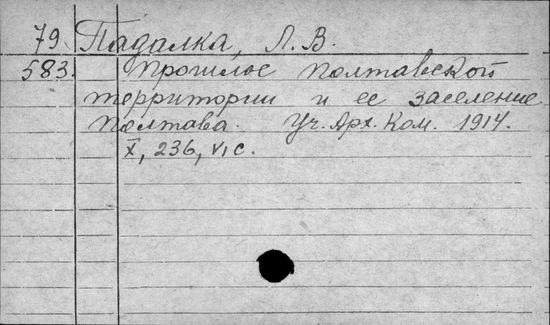 79 Падалка, Л. В.
583. Прошлое Полтавской
территории и ее заселение.
Полтава. Уч. Арх. Ком. 1914.
X, 236, VI с.